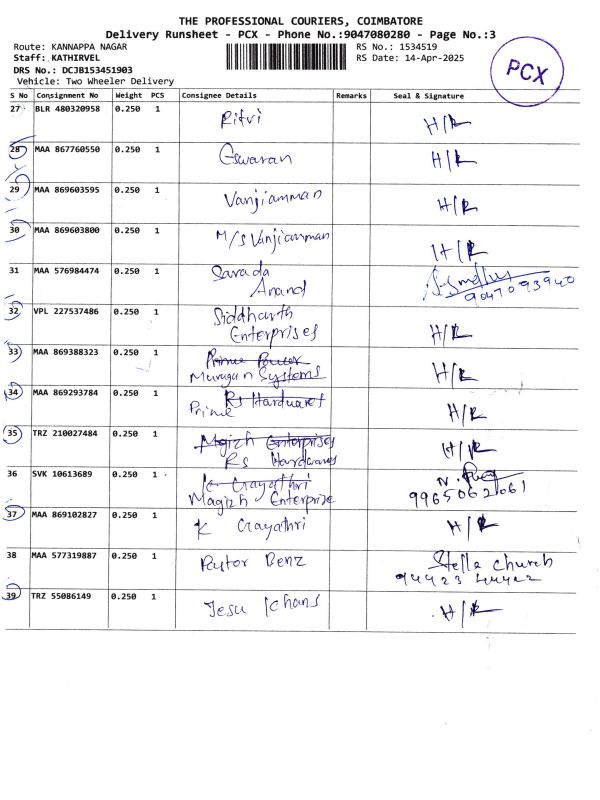 THE PROFESSIONAL COURIERS, COIMBATORE
Delivery Runsheet - PCX - Phone No.:9047080280 - Page No.:3
Route: KANNAPPA NAGAR
RS No.: 1534519
Staff: KATHIRVEL
RS Date: 14-Apr-2025
DRS No.: DCJB153451903
Vehicle: Two Wheeler Delivery
PCX
S No Consignment No Weight PCS Consignee Details Remarks Seal & Signature
27 BLR 480320958 0.250 1 Ritvi H/R
28 MAA 867760550 0.250 1 Eswaran H/R
29 MAA 869603595 0.250 1 Vanjiamman H/R
30 MAA 869603800 0.250 1 M/s Vanjiamman H/R
31 MAA 576984474 0.250 1 Sarada
Anand 9047093940
32 VPL 227537486 0.250 1 Siddharth
Enterprises H/R
33 MAA 869388323 0.250 1 Prime Power
Murugan Systems H/R
34 MAA 869293784 0.250 1 Rs Hardwares
Prime H/R
35 TRZ 210027484 0.250 1 Magizh Enterprises H/R
Rs Hardwares
36 SVK 10613689 0.250 1 K Gayathri
Magizh Enterprise 9965062061
37 MAA 869102827 0.250 1 K Gayathri H/R
38 MAA 577319887 0.250 1 Pastor Benz Stella church
94423 44422
39 TRZ 55086149 0.250 1 Jesu H/R